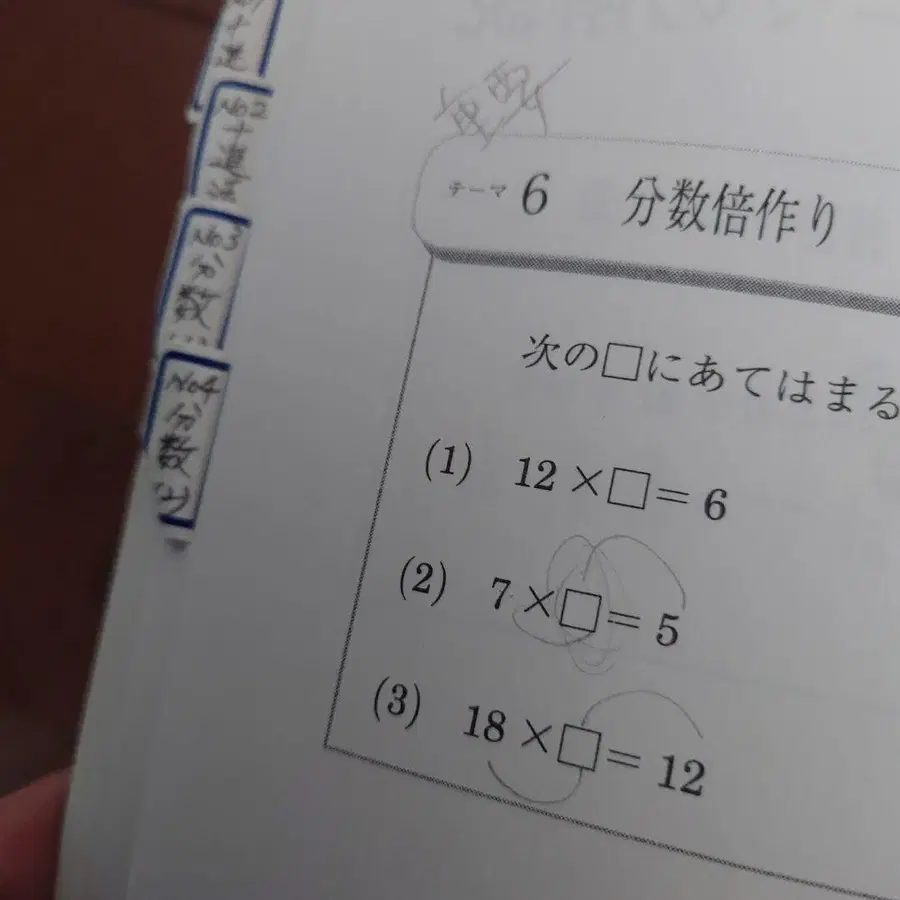 No2
No3
分
数
...
No4
分
数
(上)
テーマ 6 分数倍作り
次の□にあてはまる
(1) 12 × □ = 6
(2) 7 × □ = 5
(3) 18 × □ = 12